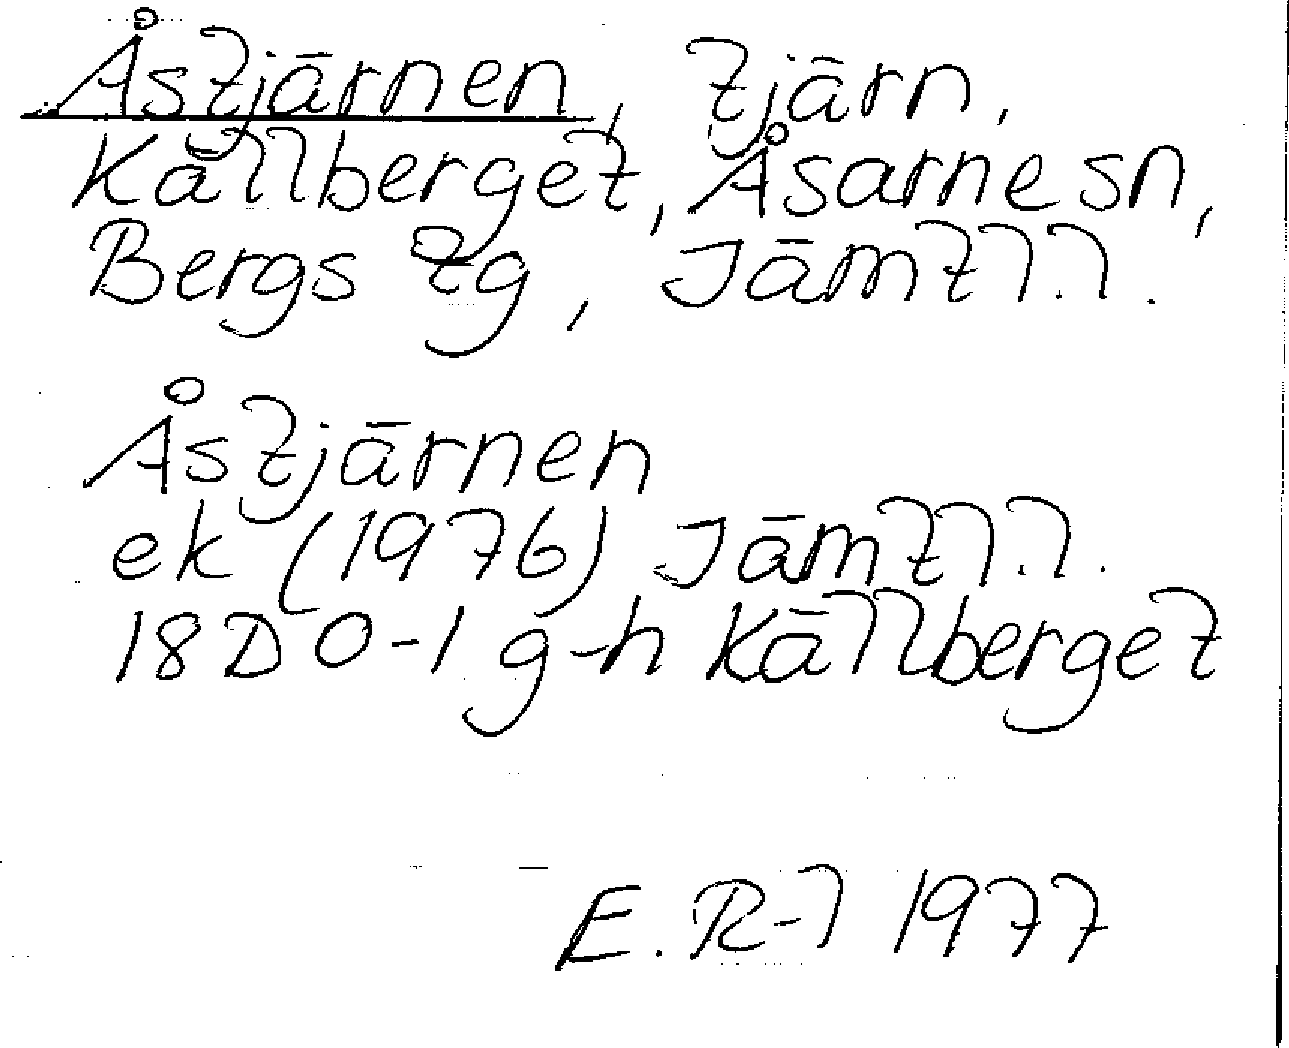 Åstjärnen, tjärn,
Källberget, Åsarne sn,
Bergs tg, Jämtl.l.
Åstjärnen
ek (1976) Jämtl.l.
18D 0-1 g-h Källberget
E. R-l 1977